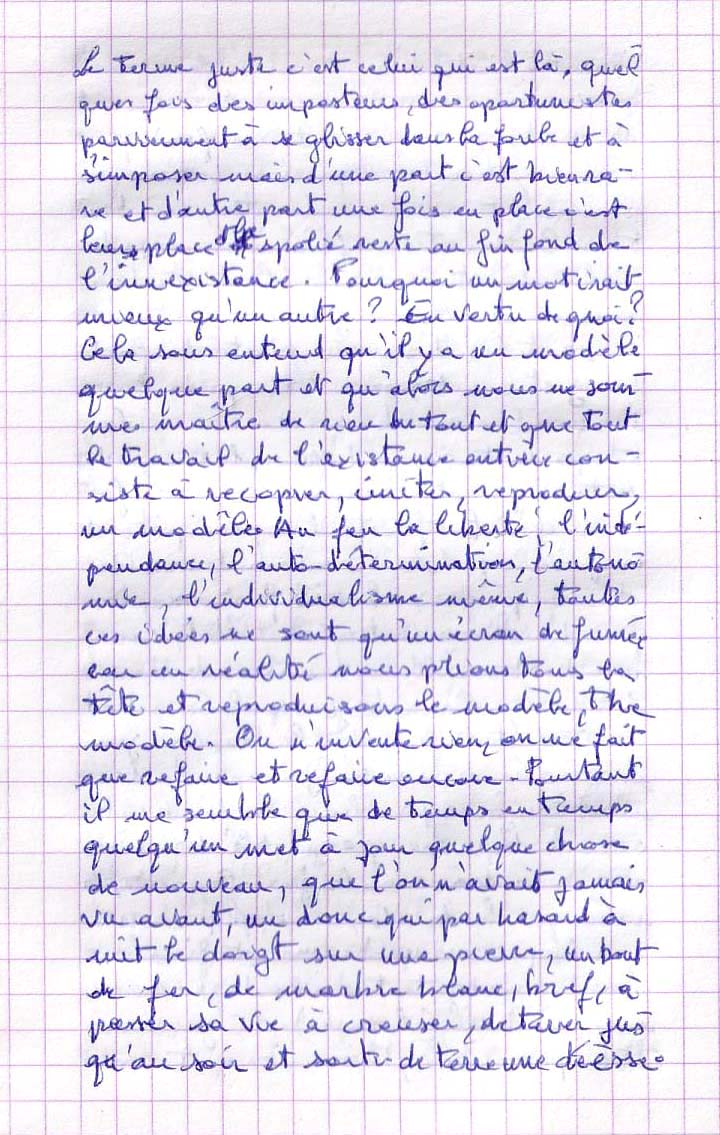 Le terme juste c'est celui qui est là, quel
ques fois des imposteurs, des oportunistes
parviennent à se glisser dans la foule et à
s'imposer mais d'une part c'est bien ra-
re et d'autre part une fois en place c'est
leur place spolié reste au fin fond de
l'innexistance. Pourquoi un mot irait
mieux qu'un autre? En vertu de quoi?
Cela sous entend qu'il y a un modèle
quelque part et qu'alors nous ne som-
mes maître de rien du tout et que tout
le travail de l'existance entière con-
siste à recopier, imiter, reproduire,
un modèle. Au feu la liberté, l'indé-
pendance, l'auto-détermination, l'autono
mie, l'individualisme même, toutes
ces idées ne sont qu'un écran de fumée
car en réalité nous plions tous la
tête et reproduisons le modèle, the
modèle. On n'invente rien, on ne fait
que refaire et refaire encore. Pourtant
il me semble que de temps en temps
quelqu'un met à jour quelque chose
de nouveau, que l'on n'avait jamais
vu avant, un donc qui par hasard à
mit le doigt sur une pierre, un bout
de fer, de marbre blanc, bref, à
passer sa vie à creuser, de taver jus
qu'au soir et sorti de terre une déèsse.